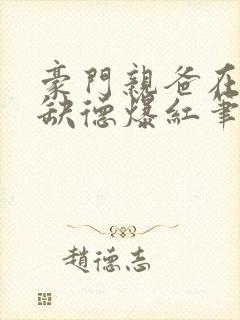 豪門親爸在
缺德爆紅筆
趙德志